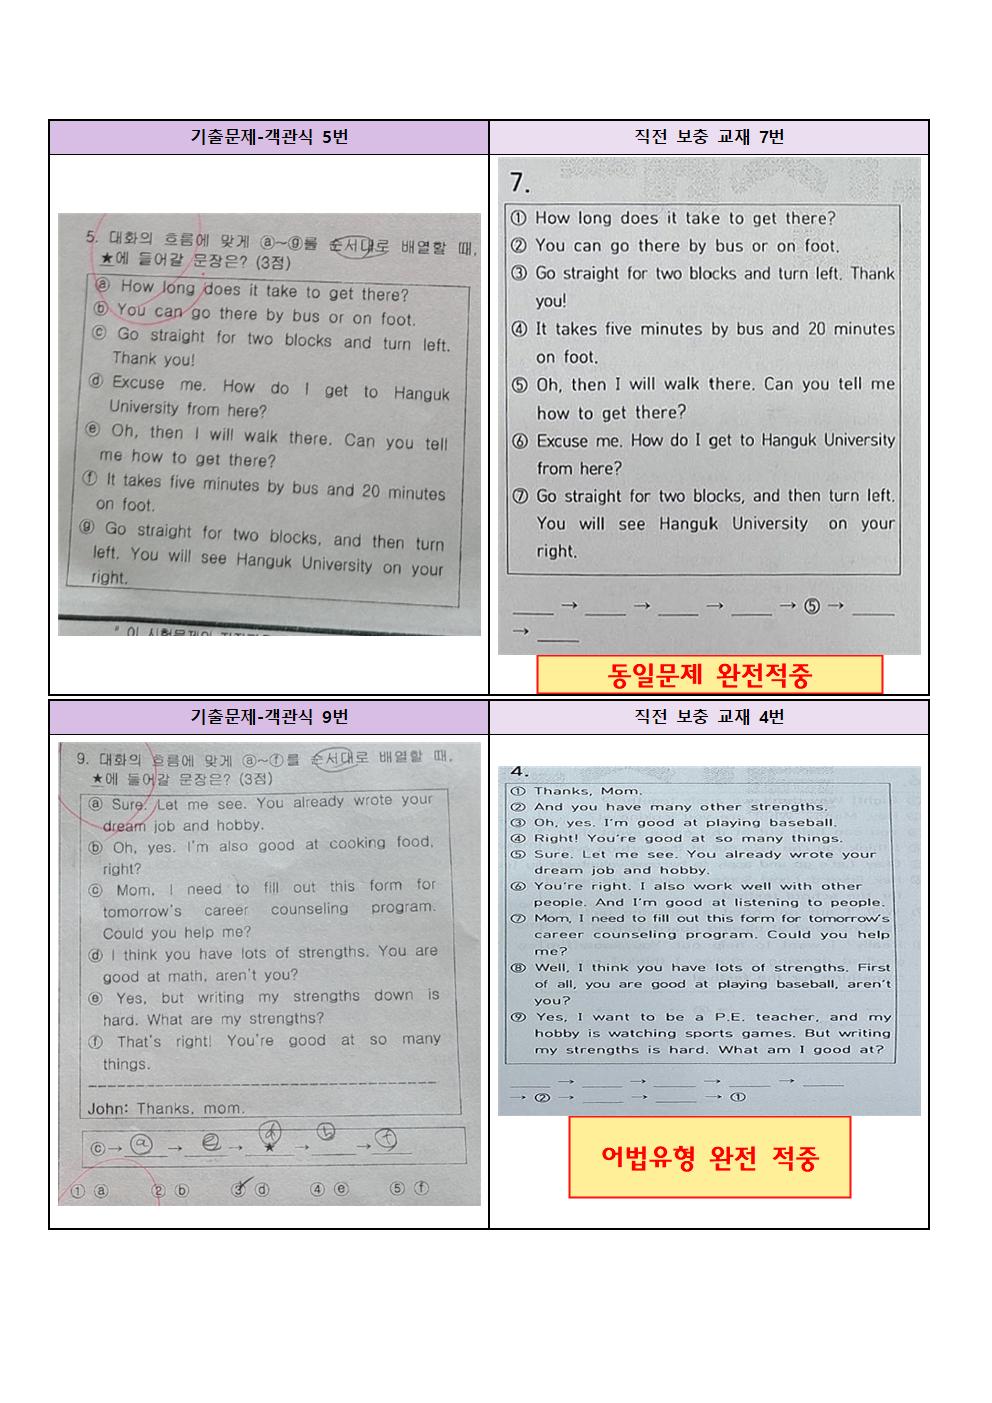 기출문제-객관식 5번
직전 보충 교재 7번
5. 대화의 흐름에 맞게 ⓐ~ⓖ를 순서대로 배열할 때,
★에 들어갈 문장은? (3점)
ⓐ How long does it take to get there?
ⓑ You can go there by bus or on foot.
ⓒ Go straight for two blocks and turn left.
Thank you!
ⓓ Excuse me. How do I get to Hanguk
University from here?
ⓔ Oh, then I will walk there. Can you tell
me how to get there?
ⓕ It takes five minutes by bus and 20 minutes
on foot.
ⓖ Go straight for two blocks, and then turn
left. You will see Hanguk University on your
right.
7.
① How long does it take to get there?
② You can go there by bus or on foot.
③ Go straight for two blocks and turn left. Thank
you!
④ It takes five minutes by bus and 20 minutes
on foot.
⑤ Oh, then I will walk there. Can you tell me
how to get there?
⑥ Excuse me. How do I get to Hanguk University
from here?
⑦ Go straight for two blocks, and then turn left.
You will see Hanguk University on your
right.
____ → ____ → ____ → ____ → ⑤ → ____
→ ____
동일문제 완전적중
기출문제-객관식 9번
직전 보충 교재 4번
9. 대화의 흐름에 맞게 ⓐ~ⓕ를 순서대로 배열할 때,
★에 들어갈 문장은? (3점)
ⓐ Sure. Let me see. You already wrote your
dream job and hobby.
ⓑ Oh, yes. I'm also good at cooking food,
right?
ⓒ Mom, I need to fill out this form for
tomorrow's career counseling program.
Could you help me?
ⓓ I think you have lots of strengths. You are
good at math, aren't you?
ⓔ Yes, but writing my strengths down is
hard. What are my strengths?
ⓕ That's right! You're good at so many
things.
John: Thanks, mom.
ⓒ→ ⓐ → ⓔ → ⓓ ★ → ⓑ → ⓕ
① ⓐ ② ⓑ ③ ⓓ ④ ⓔ ⑤ ⓕ
4.
① Thanks, Mom.
② And you have many other strengths.
③ Oh, yes. I'm good at playing baseball.
④ Right! You're good at so many things.
⑤ Sure. Let me see. You already wrote your
dream job and hobby.
⑥ You're right. I also work well with other
people. And I'm good at listening to people.
⑦ Mom, I need to fill out this form for tomorrow's
career counseling program. Could you help
me?
⑧ Well, I think you have lots of strengths. First
of all, you are good at playing baseball, aren't
you?
⑨ Yes, I want to be a P.E. teacher, and my
hobby is watching sports games. But writing
my strengths is hard. What am I good at?
____ → ____ → ____ → ____ → ____
→ ② → ____ → ____ → ①
어법유형 완전 적중